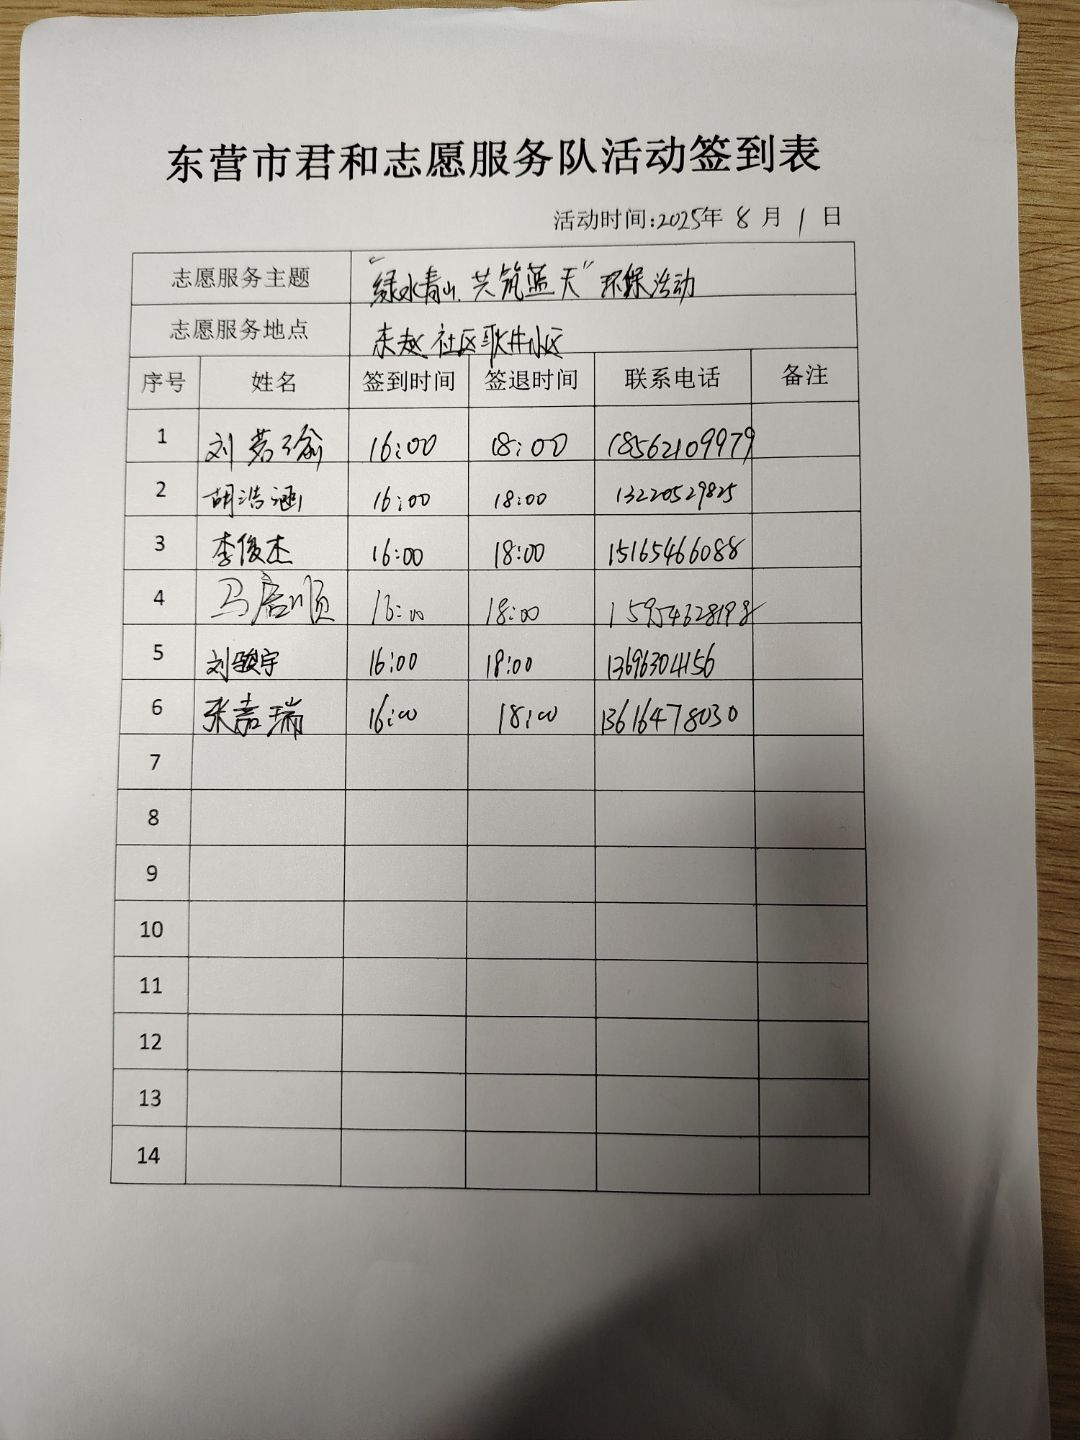 东营市君和志愿服务队活动签到表
活动时间:2025年 8 月 1 日
志愿服务主题 "绿水青山.共筑蓝天"环保活动
志愿服务地点 东赵社区耿井小区
序号 姓名 签到时间 签退时间 联系电话 备注
1 刘若瑜 16:00 18:00 18562109979
2 胡浩涵 16:00 18:00 13220529825
3 李俊杰 16:00 18:00 15165466088
4 马启顺 16:00 18:00 15954628198
5 刘骏宇 16:00 18:00 13696304156
6 张嘉瑞 16:00 18:00 13616478030
7
8
9
10
11
12
13
14